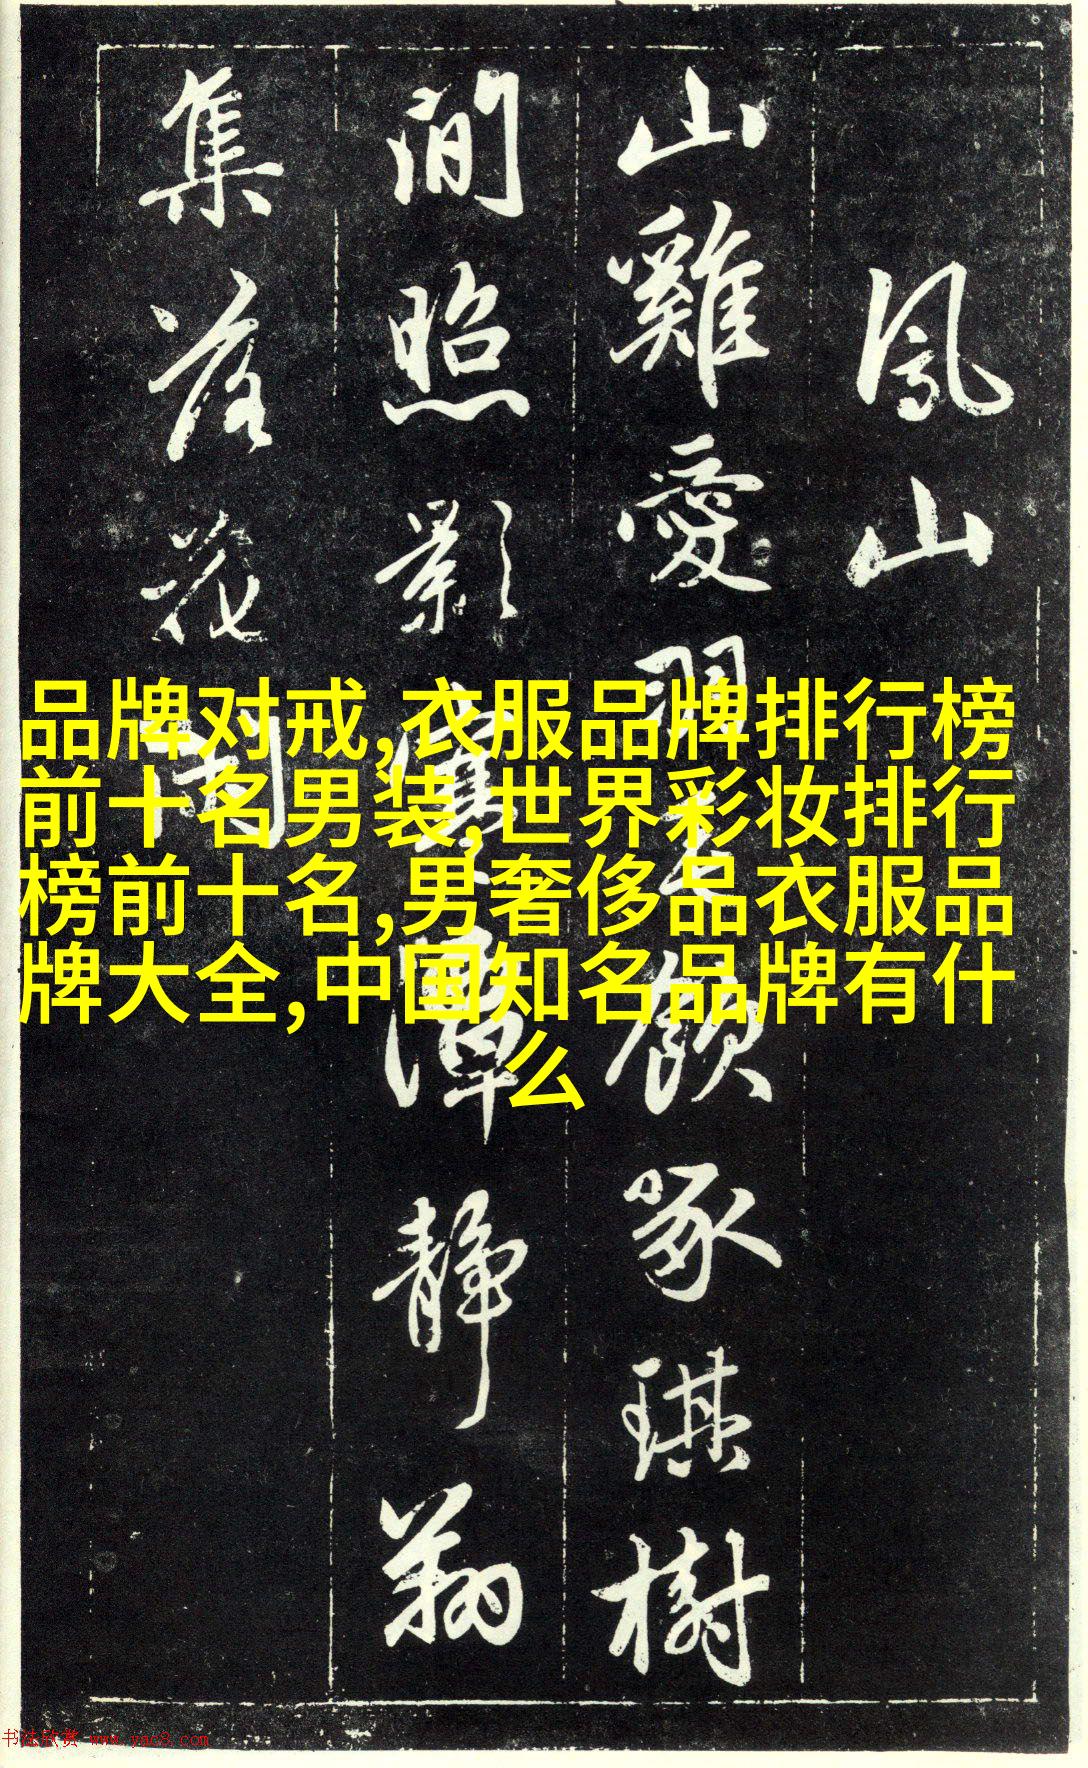 鳳山
山雞愛羽毛飲啄琪樹
間照影寒潭靜翔
集落花閑
品牌对戒,衣服品牌排行榜
前十名男装,世界彩妆排行
榜前十名,男奢侈品衣服品
牌大全,中国知名品牌有什
么
书法欣赏 www.yac8.com